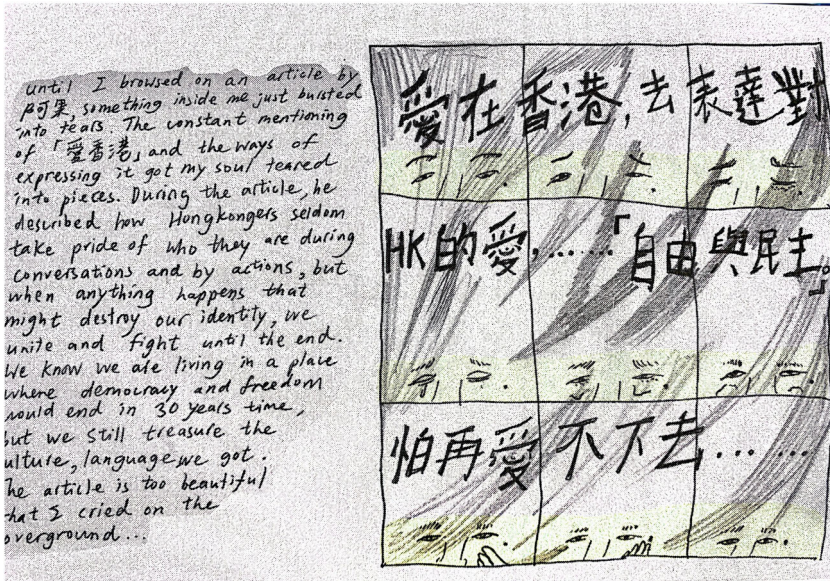 until I browsed on an article by
阿果, something inside me just bursted
into tears. The constant mentioning
of 「愛香港」 and the ways of
expressing it got my soul teared
into pieces. During the article, he
described how Hongkongers seldom
take pride of who they are during
conversations and by actions, but
when anything happens that
might destroy our identity, we
unite and fight until the end.
We know we are living in a place
where democracy and freedom
would end in 30 years time,
but we still treasure the
ulture, language we got.
he article is too beautiful
hat I cried on the
overground...
愛在香港, 去表達對
HK的愛, ......「自由與民主。」
怕再愛不下去......